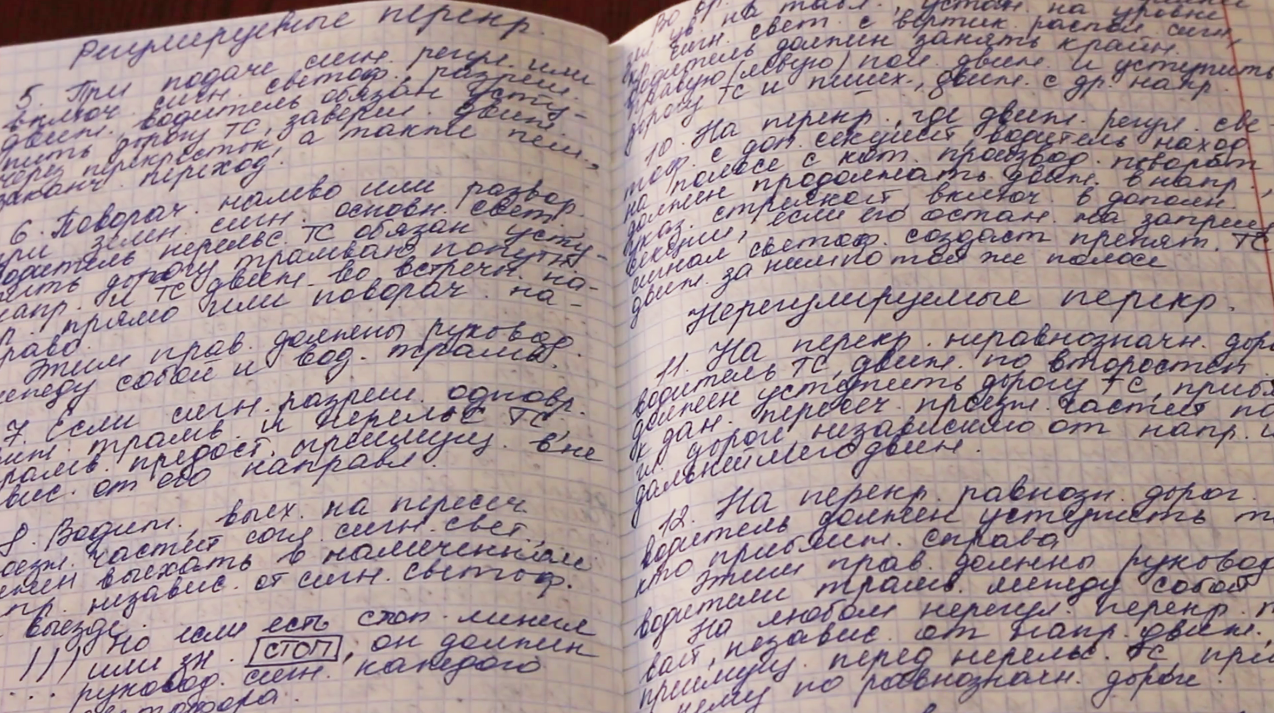 Регулируемые перекр.
5. При подаче сигн. регул. или
включ. сигн. светоф., разреш.
движ. водитель обязан усту-
пить дорогу ТС, заверш. движ.
через перекресток, а также пеш.,
заканч. переход.
6. Поворач. налево или развор.
при зелен. сигн. основн. свет.
водитель нерельс. ТС обязан усту-
пить дорогу трамваю попутн.
напр. и ТС движ. во встречн. на-
пр. прямо или поворач. на-
право.
Этим прав. должены руковод.
между собой и вод. трамв.
7. Если сигн. разреш. одновр.
движ. трамв. и нерельс ТС
трамв. предост. преимущ. вне
завис. от его направл.
8. Водит., выех. на пересеч
проезж. частей согл. сигн. свет.,
должен выехать в намеченном
напр. независ. от сигн. светоф.
на выезде.
Но если есть стоп линия
!!! или зн. СТОП, он должен
руковод. сигн. каждого
светофора.
устан. на уровне
сигн. свет. с вертик. распол. сигн,
водитель должен занять крайн.
правую (левую) пол. движ. и уступить
дорогу ТС и пеших., движ. с др. напр.
10. На перекр., где движ. регул. све-
тоф. с доп. секцией, водитель наход.
на полосе с кот. производ. поворот
должен продолжать движ. в напр.,
указ. стрелкой включ в дополн.
секции, если его остан. на запрещ.
сигнал светоф. создаст препят. ТС
движ. за ним по той же полосе
Нерегулируемые перекр.
11. На перекр. неравнозначн. доро
водитель ТС, движ. по второстеп.
должен уступить дорогу ТС, прибл
к дан. пересеч. проезж. частей по
гл. дороге независимо от напр. и
дальнейшего движ.
12. На перекр. равнозн. дорог.
водитель должен уступить т
кто приближ. справа
Этим прав. должны руковод
водители трамв. между собой
На любом нерегул. перекр. т
вай, независ. от напр. движ.,
преимущ. перед нерельс. ТС при
нему по равнозначн. дороге